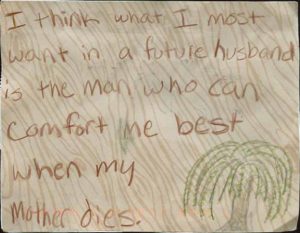 I think what I most
want in a future husband
is the man who can
comfort me best
when my
Mother dies.